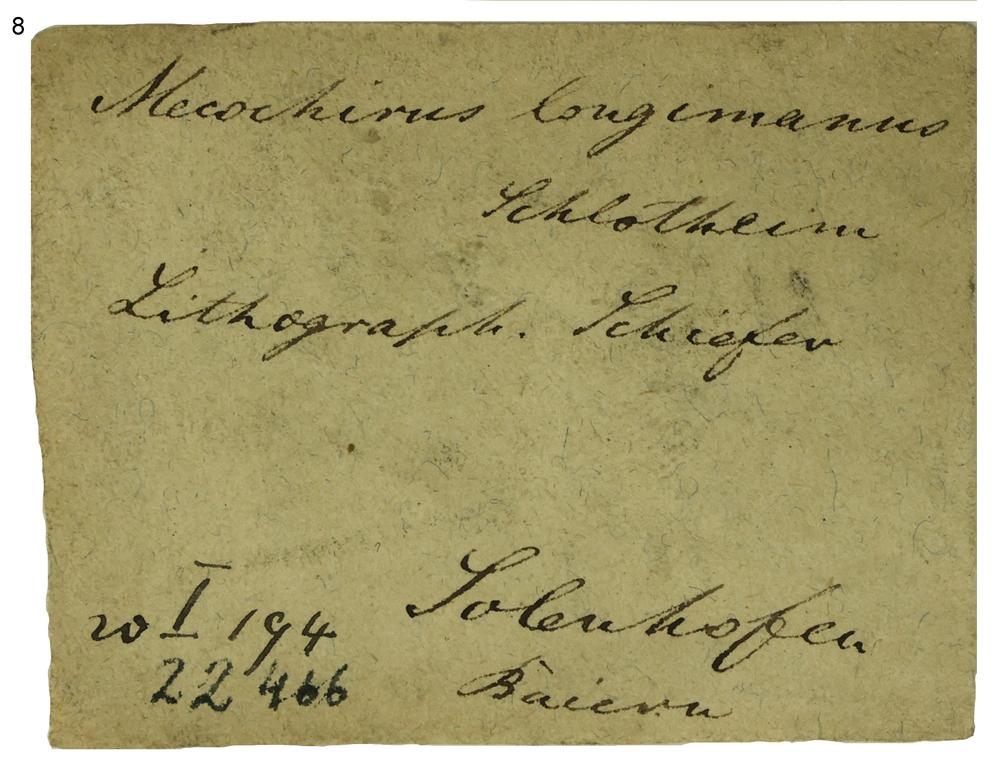 8
Mecochirus longimanus
Schlotheim
Lithograph. Schiefer
Solenhofen
I 194
22 466
Baiern